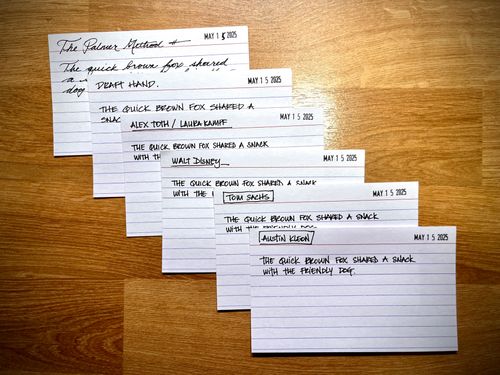 The Palmer Method #
MAY 1 5 2025
The quick brown fox shared
a
dog
DRAFT HAND.
MAY 1 5 2025
THE QUICK BROWN FOX SHARED A
SNAC
ALEX TOTH / LAURA KAMPF
MAY 1 5 2025
THE QUICK BROWN FOX SHARED A SNACK
WITH T
WALT DISNEY
MAY 1 5 2025
THE QUICK BROWN FOX SHARED A SNACK
WITH THE
TOM SACHS
MAY 1 5 2025
THE QUICK BROWN FOX SHARED A SNACK
WITH THE FRIENDLY DOG
AUSTIN KLEON
MAY 1 5 2025
THE QUICK BROWN FOX SHARED A SNACK
WITH THE FRIENDLY DOG.